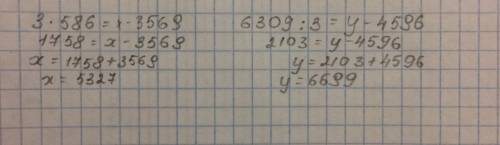 3 · 586 = x - 3569
1758 = x - 3569
x = 1758 + 3569
x = 5327
6309 : 3 = y - 4596
2103 = y - 4596
y = 2103 + 4596
y = 6699